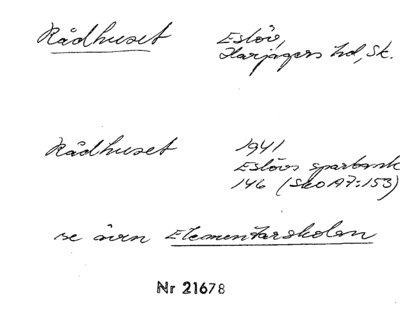 Rådhuset Eslöv,
Harjagers hd, Sk.
Rådhuset 1941
Eslövs sparbank
146 (Sko A7:153)
se även Elementarskolan
Nr 21678